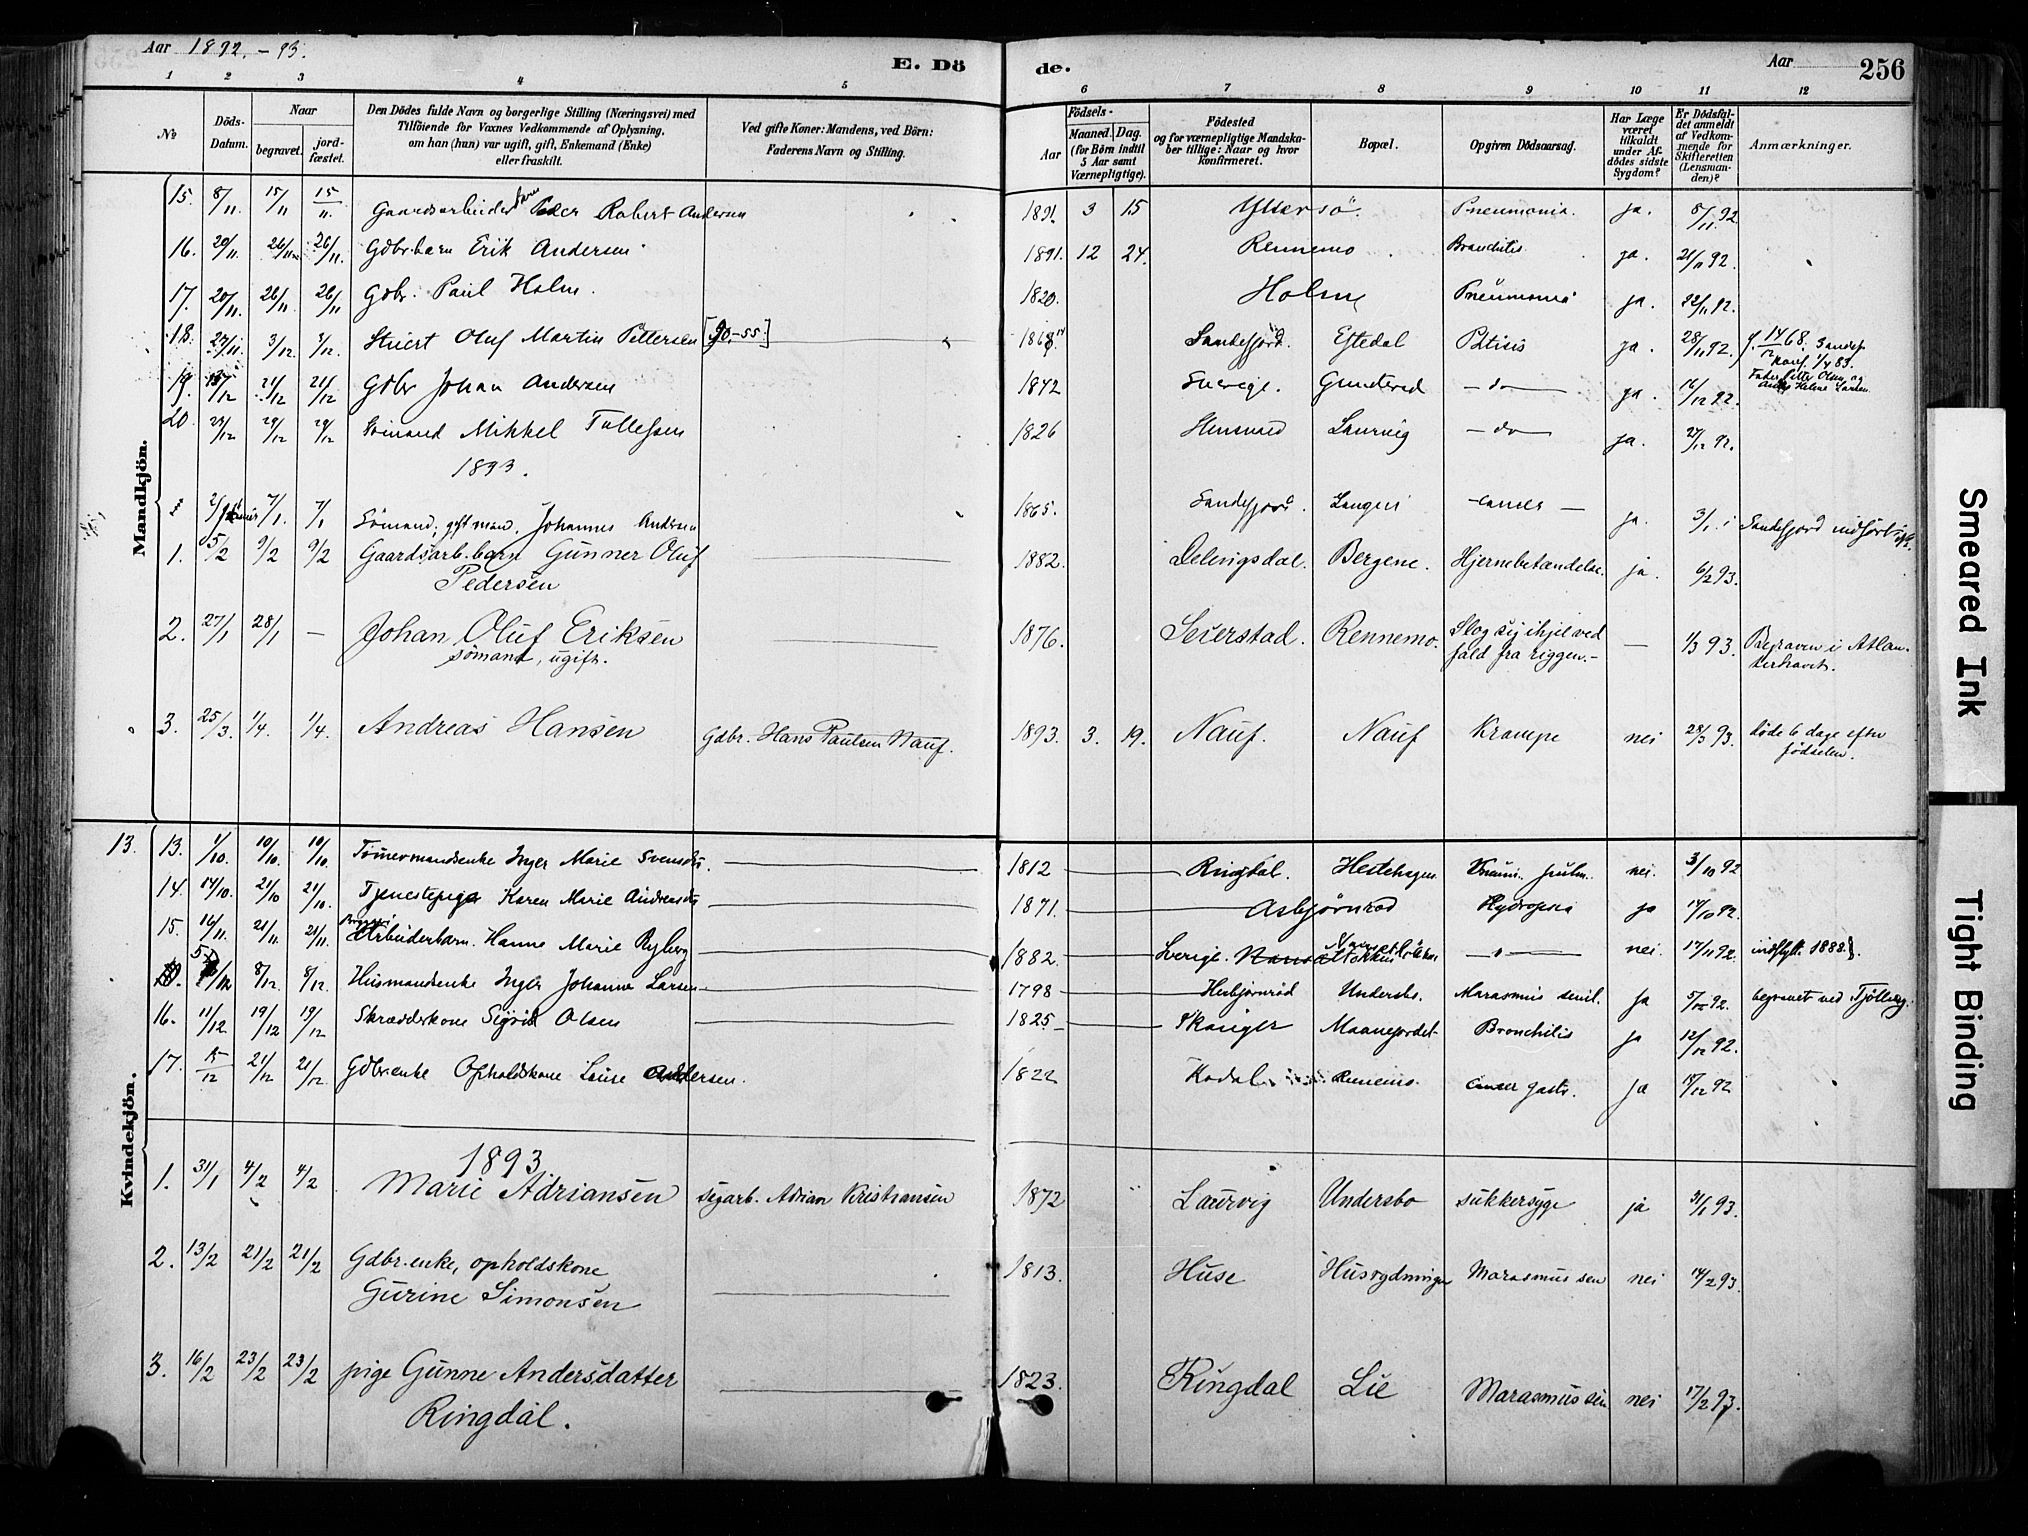 Aar 1892.-93.
E. Dö
de.
Aar
256
1 2 3 4 5 6 7 8 9 10 11 12
No
Döds-Datum.
Naar
begravet.
jordfæstet.
Den Dödes fulde Navn og borgerlige Stilling (Næringsvei) med
Tilföiende for Voxnes Vedkommende af Oplysning,
om han (hun) var ugift, gift, Enkemand (Enke)
eller fraskilt.
Ved gifte Koner: Mandens, ved Börn:
Faderens Navn og Stilling.
Födsels-
Aar
Maaned. Dag.
(for Börn indtil
5 Aar samt
Værnepligtige).
Födested
og for værnepligtige Mandskaber tillige: Naar og hvor
konfirmeret.
Bopæl.
Opgiven Dödsaarsag.
Har Læge
været
tilkaldt
under Afdödes sidste
Sygdom?
Er Dödsfaldet anmeldt
af Vedkommende for
Skifteretten
(Lensmanden)?
Anmærkninger.
Mandkjön.
15. 8/11. 15/11 15/11. Gaardsarbeider Peder Robert Andersen 1891. 3 15 Yttersö. Pneumonia. ja. 8/11.92
16. 20/11. 26/11 26/11. Gdbr.barn Erik Andersen 1891. 12 24. Rennemo Bronchitis ja. 21/11 92.
17. 20/11. 26/11 26/11 Gdbr. Paul Holm. 1820. Holm Pneumonia ja. 22/11 92.
18. 3/12. 3/12. Oluf Martin Pettersen [90.-55] Sandefjord. Eftedal Ptisis ja. 28/11 92. f. 14/12 68. i Sandef. konf. 1/4 83.
19. 21/12 21/12 Gdbr Johan Andersen 1842 Sverige. -do- ja. 16/12 92. Fader Petter Olsen og
Helene Larsen
20 29/12 29/12 Sömand Mikkel Tollefsen 1826 Laurvig -do- ja. 27/12 92.
1893.
1 7/1. 7/1 Sömand, gift mand. Johannes Andersen 1865. Sandefjord Cancer ja. 3/1. i Sandefjord indfört
1. 5/2 9/2 9/2 Gaardsarb.barn Gunner Oluf 1882. Delingsdal. Bergene. Hjernebetændelse. ja. 6/2 93.
Pedersen
2. 27/1 28/1 - Johan Oluf Eriksen 1876. Seierstad. Rennemo. Slog sig ihjel ved - 1/3 93. Begraven i Atlan-
sömand, ugift. fald fra riggen.- terhavet.
3. 25/3. 1/4. 1/4. Andreas Hansen Gdbr. Hans Paulsen Nauf. 1893. 3. 19. Nauf. Nauf Krampe nei 28/3 93. Döde 6 dage efter
födselen.
Kvindekjön.
13. 13. 1/10. 10/10. 10/10. Tömermandsenke Inger Marie Svensdtr. 1812 Ringdal. Hestehagen nei. 3/10 92
14. 14/10. 21/10 21/10. Tjenestepige Karen Marie Andersdtr 1871. Asbjørnrød Hydropsia ja 17/10 92.
15. 16/11. 21/11. 21/11. Arbeiderbarn. Hanne Marie Ryberg 1882. Sverige. nei. 17/11 92. indflytt. 1888.
8/12. 8/12. Husmandsenke Inger Johanne Larsen 1798 Herbjørnröd Undersbo. Marasmus senil. ja 5/12 92. begravet ved Tjölling.
16. 11/12 19/12 19/12 Skrædderkone Sigrid Olsen 1825 Skauger Maanejordet Bronchitis ja 12/12 92.
17. 15/12 21/12 21/12. Gdbr.enke Opholdskone Louise Andersen. 1822 Kodal. Rennemo. Cancer gastr. ja 17/12 92
1893
1. 31/1 4/2 4/2 Marie Adriansen sigarb. Adrian Kristiansen 1872 Laurvig Undersbo sukkersyge ja 31/1 93.
2. 13/2 21/2 21/2 Gdbr.enke, opholdskone 1813. Huse Husrydningen Marasmus sen nei 14/2 93.
Gurine Simonsen
3. 16/2 23/2 23/2 pige Gunne Andersdatter 1823. Ringdal Lie Marasmus sen nei 17/2 93.
Ringdal.
Smeared Ink
Tight Binding